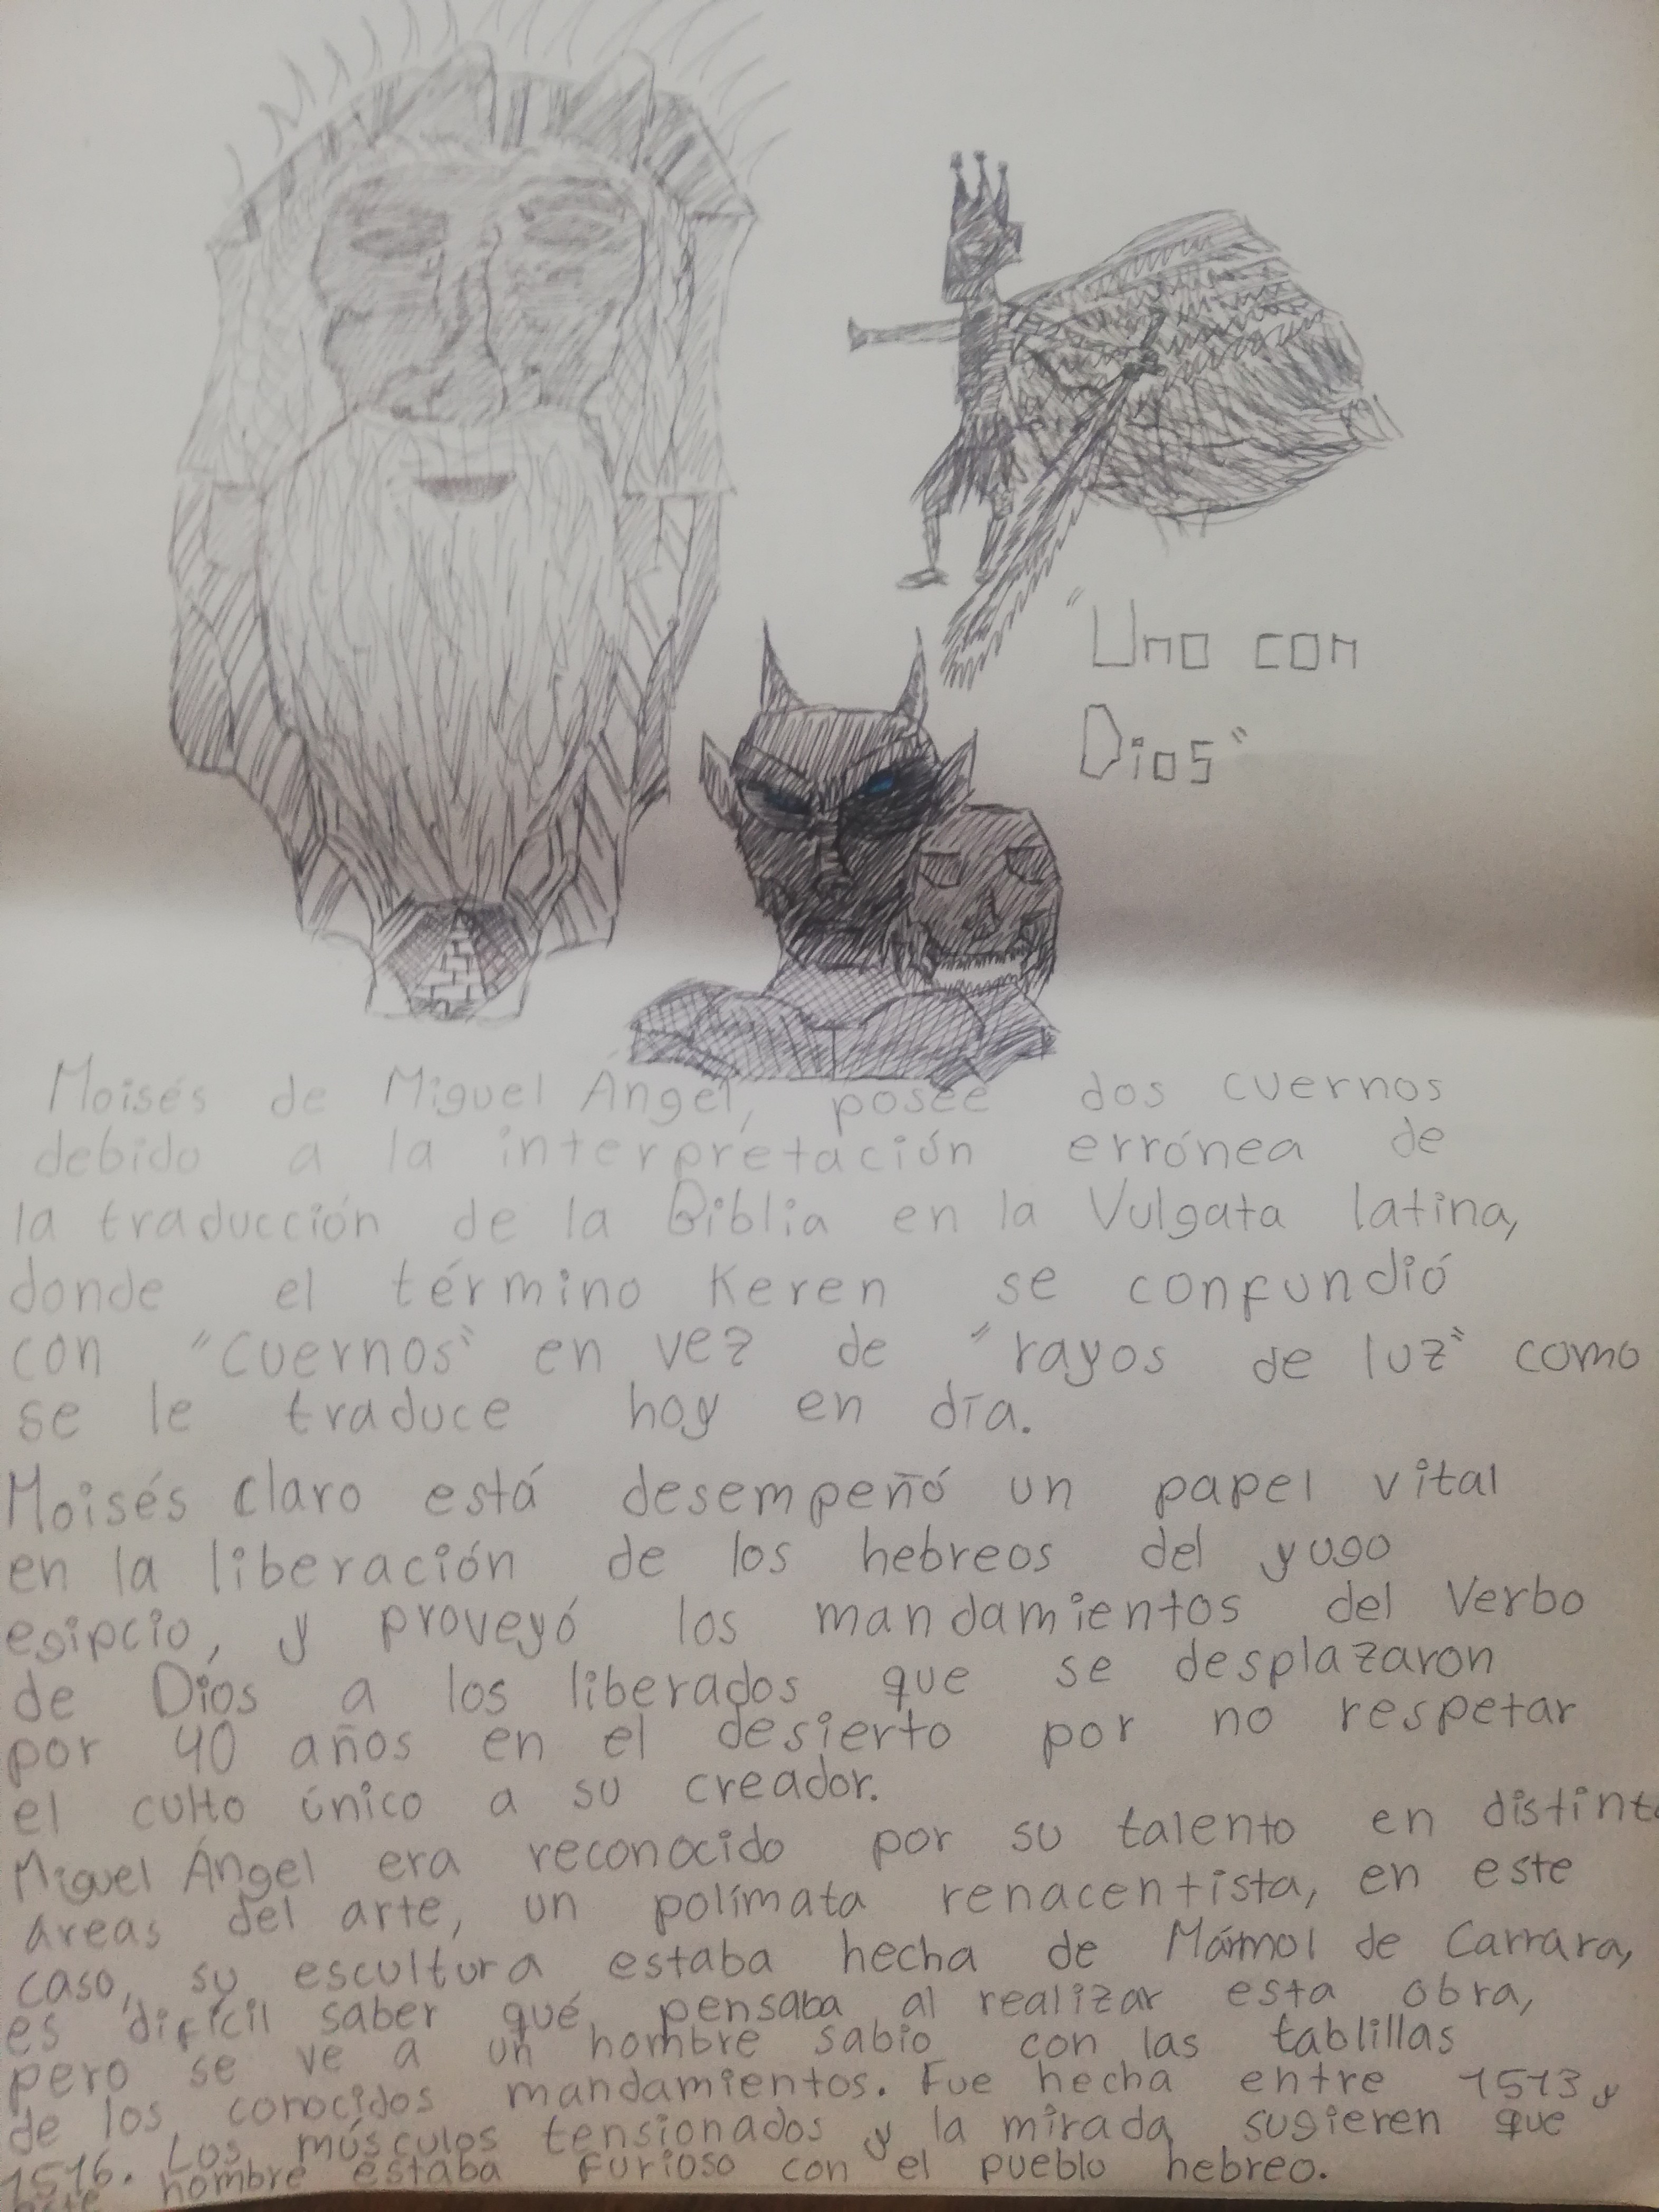 "Uno con
Dios"
Moisés de Miguel Ángel, posee dos cuernos
debido a la interpretación errónea de
la traducción de la Biblia en la Vulgata latina,
donde el término Keren se confundió
con "cuernos" en vez de "rayos de luz" como
se le traduce hoy en día.
Moisés claro está desempeñó un papel vital
en la liberación de los hebreos del yugo
egipcio, y proveyó los mandamientos del Verbo
de Dios a los liberados que se desplazaron
por 40 años en el desierto por no respetar
el culto único a su creador.
Miguel Ángel era reconocido por su talento en distint
áreas del arte, un polímata renacentista, en este
caso, su escultura estaba hecha de Mármol de Carrara,
es difícil saber qué pensaba al realizar esta obra,
pero se ve a un hombre sabio con las tablillas
de los conocidos mandamientos. Fue hecha entre 1513 y
1516. Los músculos tensionados y la mirada sugieren que
este hombre estaba furioso con el pueblo hebreo.